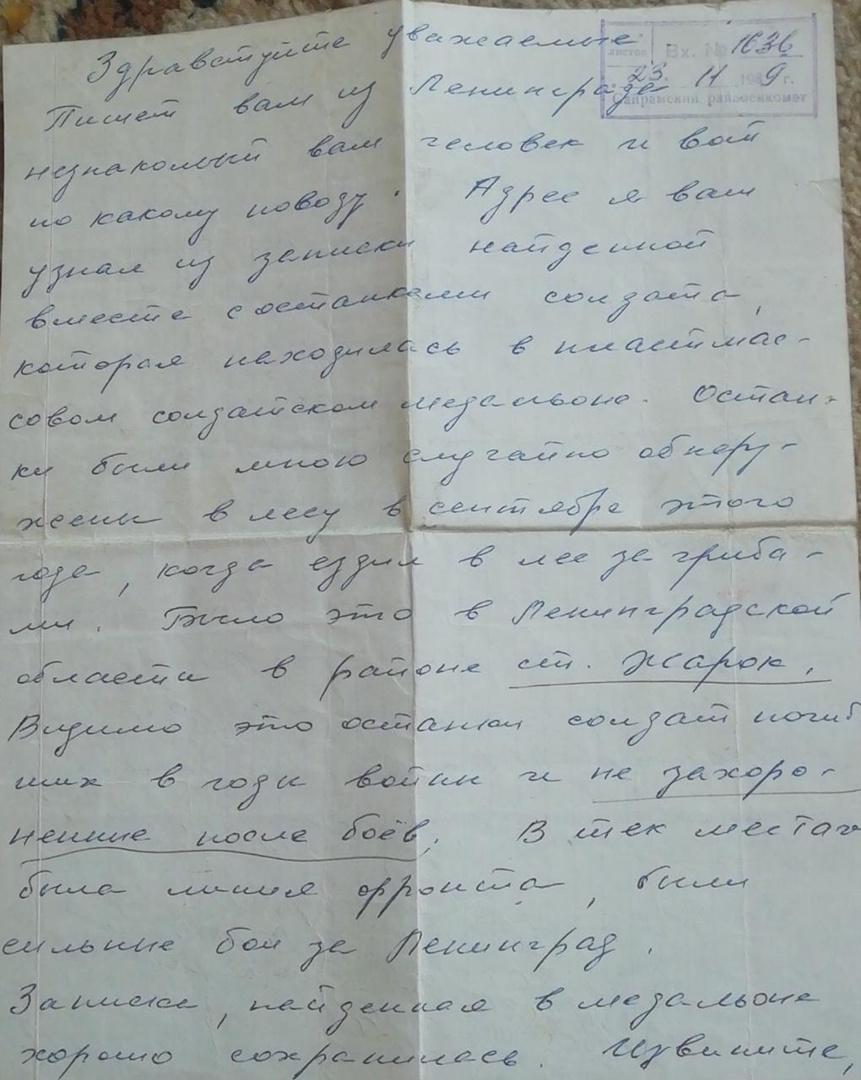 Здравствуйте уважаемые
листов Вх. № 1636
23. 11 198 9 г.
Сайрамский райвоенкомат
Пишет вам из Ленинграда
незнакомый вам человек и вот
по какому поводу. Адрес я ваш
узнал из записки найденной
вместе с останками солдата,
которая находилась в пластмас-
совом солдатском медальоне. Остан-
ки были мною случайно обнару-
жены в лесу в сентябре этого
года, когда ездил в лес за гриба-
ми. Было это в Ленинградской
области в районе ст. Жарок.
Видимо это останки солдат погиб
ших в годы войны и не захоро-
ненные после боёв. В тех местах
была линия фронта, были
сильные бои за Ленинград.
Записка, найденная в медальоне
хорошо сохранилась. Извините,